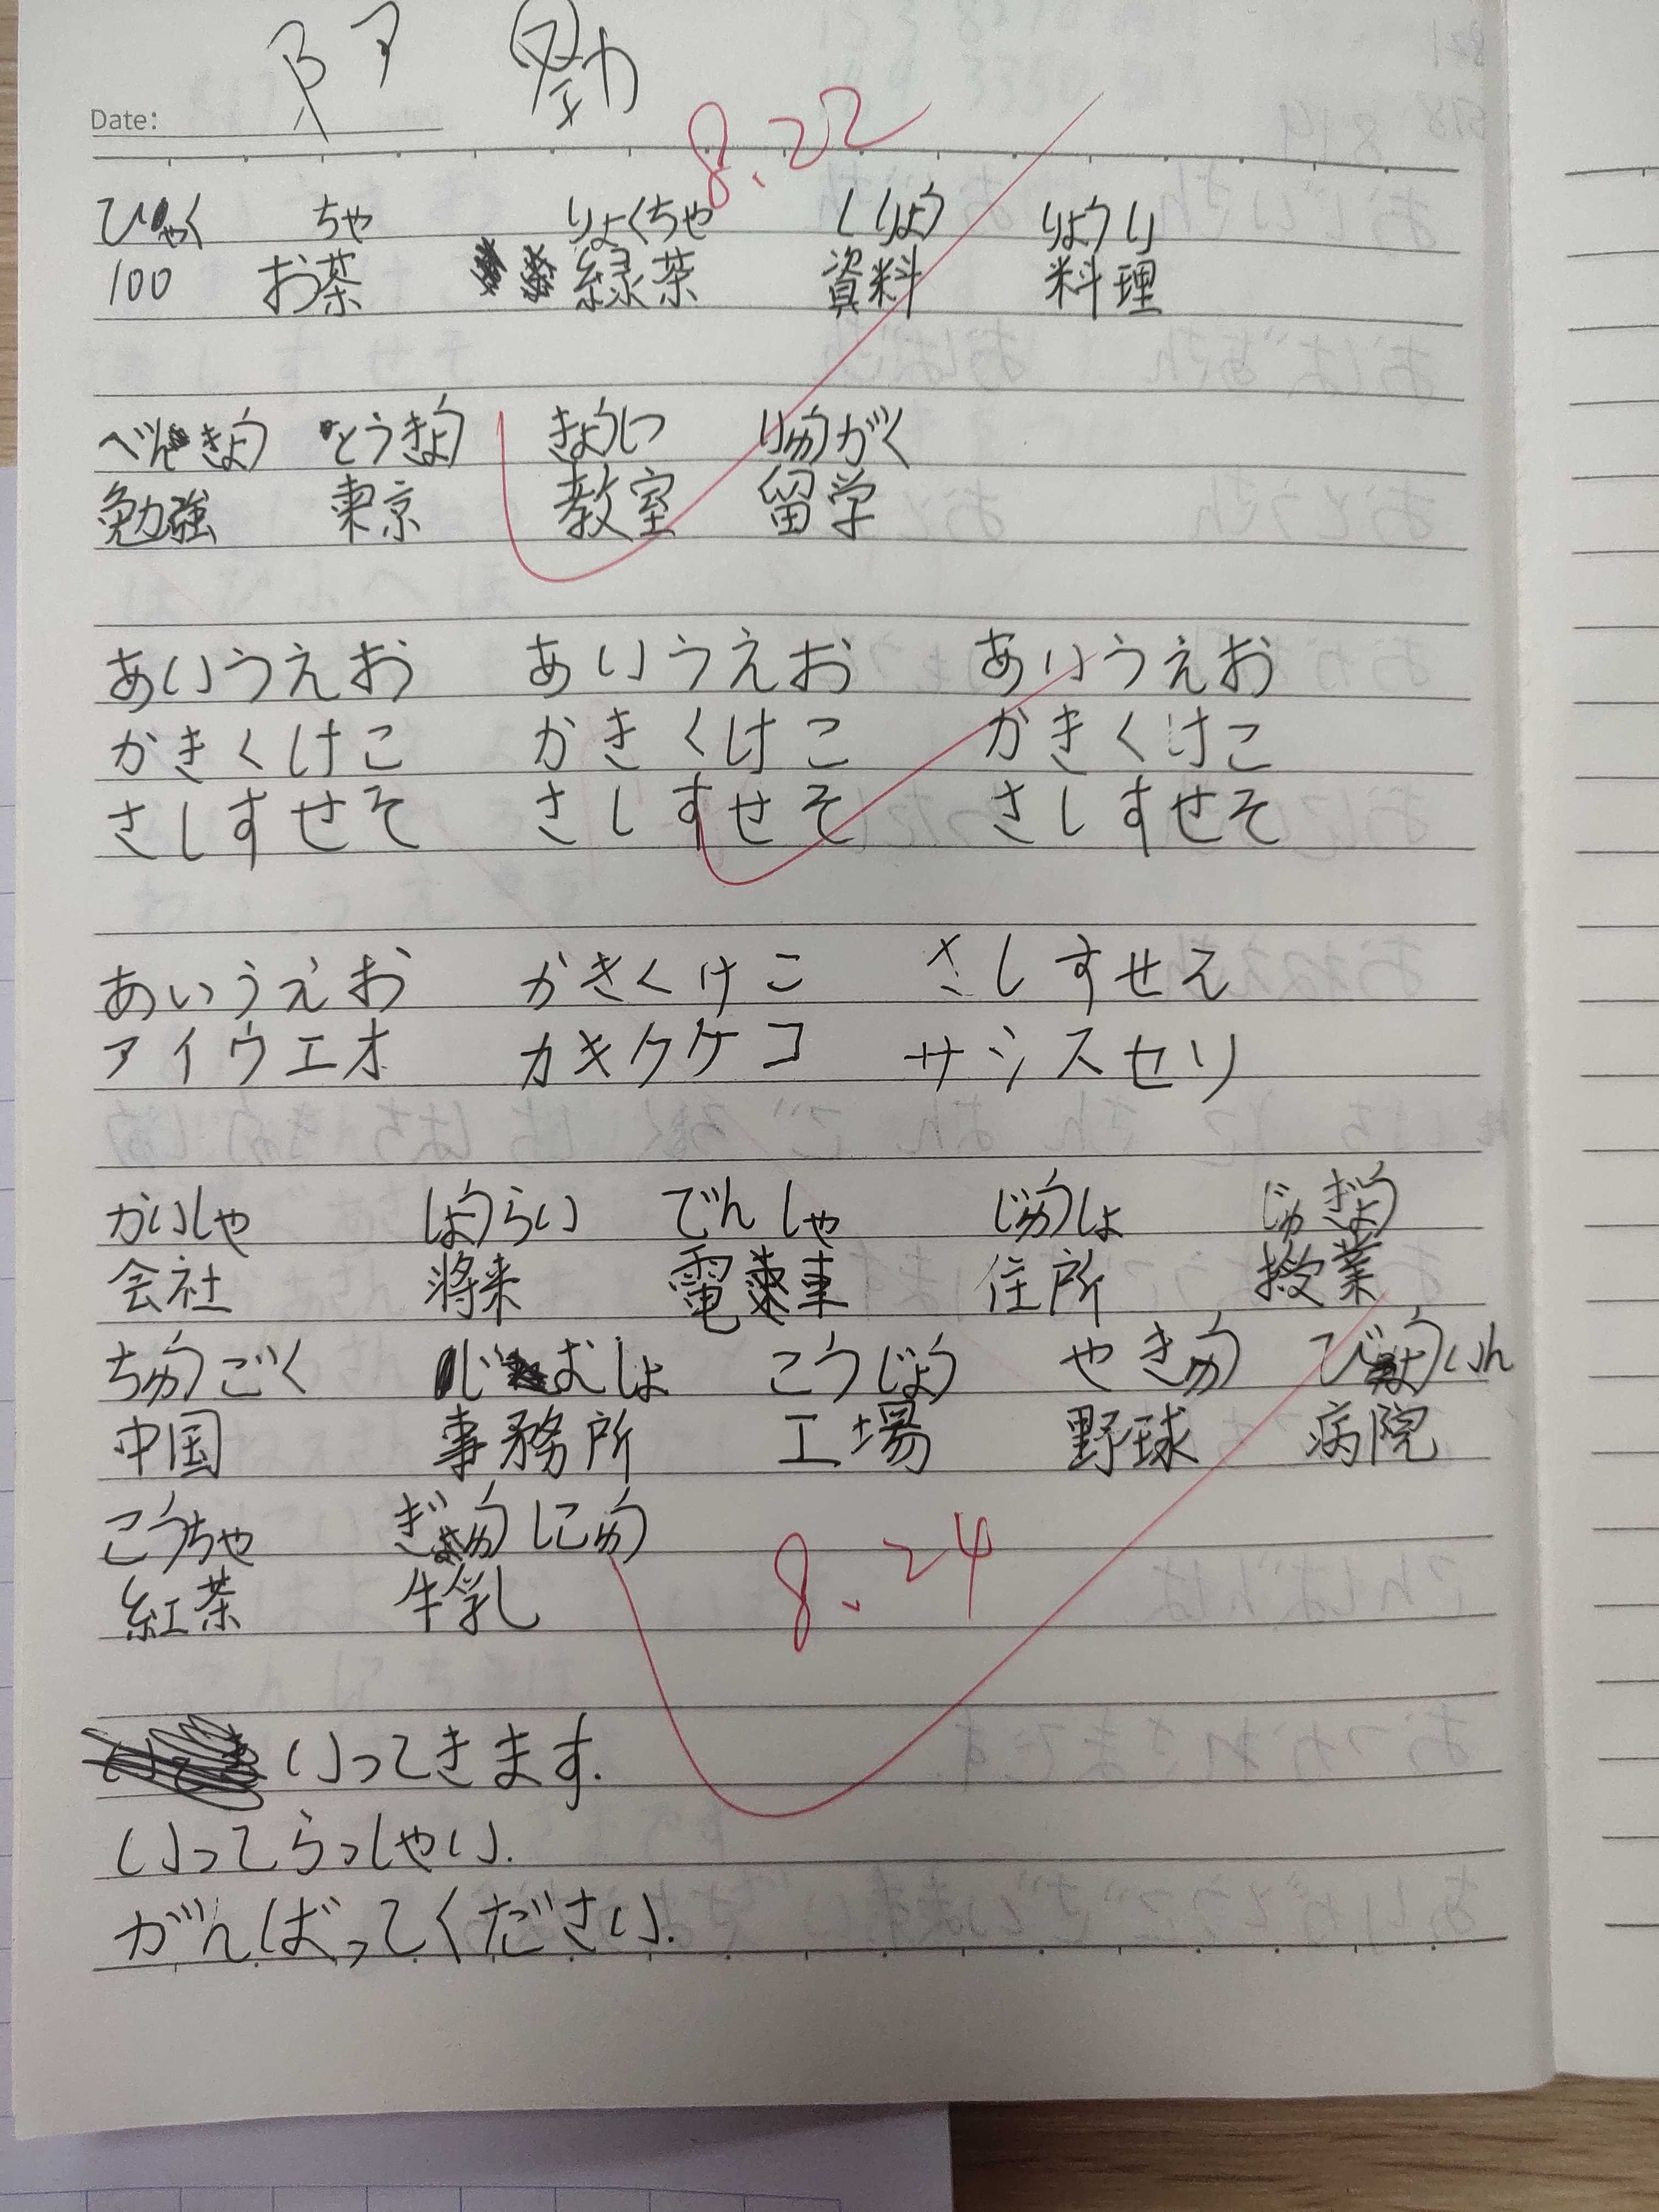 Date:
8.22
ひゃく ちゃ りょくちゃ しりょう りょうり
100 お茶 緑茶 資料 料理
べんきょう とうきょう きょうしつ りゅうがく
勉強 東京 教室 留学
あいうえお あいうえお あいうえお
かきくけこ かきくけこ かきくけこ
さしすせそ さしすせそ さしすせそ
あいうえお かきくけこ さしすせそ
アイウエオ カキクケコ サシスセソ
かいしゃ しょうらい でんしゃ じゅうしょ じゅぎょう
会社 将来 電車 住所 授業
ちゅうごく じむしょ こうじょう やきゅう びょういん
中国 事務所 工場 野球 病院
こうちゃ ぎゅうにゅう
紅茶 牛乳
8.24
いってきます.
いってらっしゃい.
がんばってください.